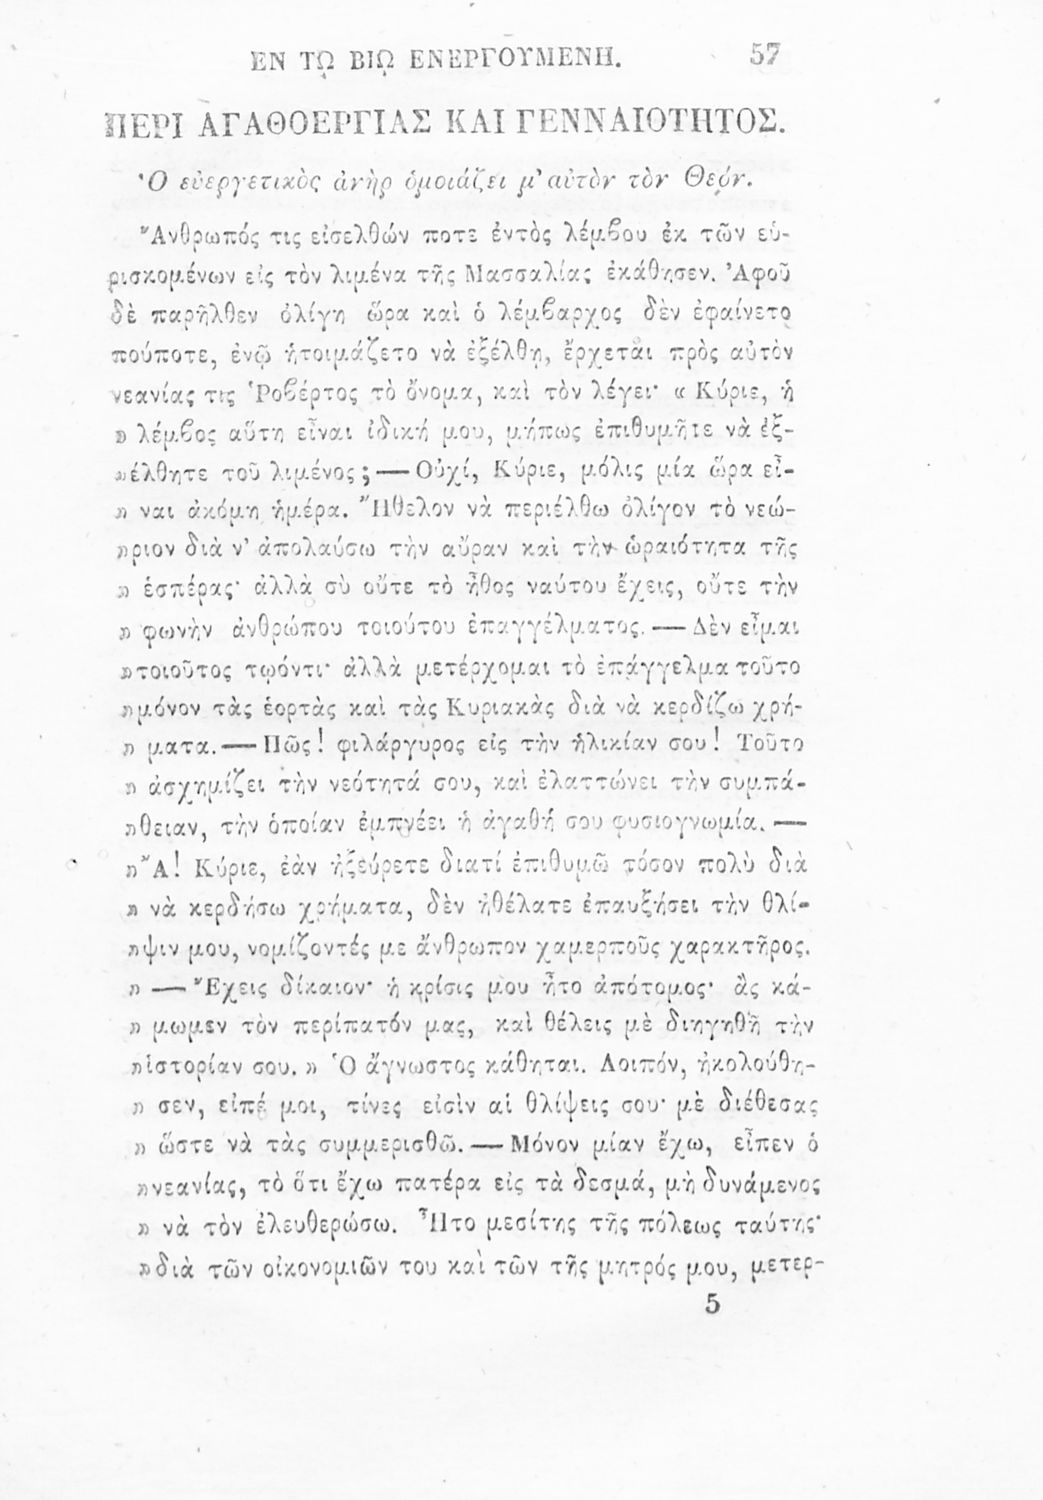 ΕΝ ΤΩ ΒΙΩ ΕΝΕΡΓΟΥΜΕΝΗ. 57
ΠΕΡΙ ΑΓΑΘΟΕΡΓΙΑΣ ΚΑΙ ΓΕΝΝΑΙΟΤΗΤΟΣ.
Ὁ εὐεργετικὸς ἀνὴρ ὁμοιάζει μ' αὐτὸν τὸν Θεόν.
Ἄνθρωπός τις εἰσελθών ποτε ἐντὸς λέμβου ἐκ τῶν εὑ-
ρισκομένων εἰς τὸν λιμένα τῆς Μασσαλίας ἐκάθησεν. Ἀφοῦ
δὲ παρῆλθεν ὀλίγη ὥρα καὶ ὁ λέμβαρχος δὲν ἐφαίνετο
πούποτε, ἐνῷ ἡτοιμάζετο νὰ ἐξέλθη, ἔρχεται πρὸς αὐτὸν
νεανίας τις Ῥοβέρτος τὸ ὄνομα, καὶ τὸν λέγει· « Κύριε, ἡ
» λέμβος αὕτη εἶναι ἰδική μου, μήπως ἐπιθυμῆτε νὰ ἐξ-
»έλθητε τοῦ λιμένος; — Οὐχί, Κύριε, μόλις μία ὥρα εἶ-
» ναι ἀκόμη ἡμέρα. Ἤθελον νὰ περιέλθω ὀλίγον τὸ νεώ-
»ριον διὰ ν' ἀπολαύσω τὴν αὔραν καὶ τὴν ὡραιότητα τῆς
» ἑσπέρας· ἀλλὰ σὺ οὔτε τὸ ἦθος ναύτου ἔχεις, οὔτε τὴν
» φωνὴν ἀνθρώπου τοιούτου ἐπαγγέλματος. — Δὲν εἶμαι
»τοιοῦτος τῳόντι· ἀλλὰ μετέρχομαι τὸ ἐπάγγελμα τοῦτο
»μόνον τὰς ἑορτὰς καὶ τὰς Κυριακὰς διὰ νὰ κερδίζω χρή-
» ματα. — Πῶς! φιλάργυρος εἰς τὴν ἡλικίαν σου! Τοῦτο
» ἀσχημίζει τὴν νεότητά σου, καὶ ἐλαττώνει τὴν συμπά-
»θειαν, τὴν ὁποίαν ἐμπνέει ἡ ἀγαθή σου φυσιογνωμία. —
»Ἄ! Κύριε, ἐὰν ἠξεύρετε διατί ἐπιθυμῶ τόσον πολὺ διὰ
» νὰ κερδήσω χρήματα, δὲν ἠθέλατε ἐπαυξήσει τὴν θλί-
»ψιν μου, νομίζοντές με ἄνθρωπον χαμερποῦς χαρακτῆρος.
» — Ἔχεις δίκαιον· ἡ κρίσις μου ἦτο ἀπότομος· ἂς κά-
» μωμεν τὸν περίπατόν μας, καὶ θέλεις μὲ διηγηθῆ τὴν
»ἱστορίαν σου. » Ὁ ἄγνωστος κάθηται. Λοιπόν, ἠκολούθη-
» σεν, εἰπέ μοι, τίνες εἰσὶν αἱ θλίψεις σου· μὲ διέθεσας
» ὥστε νὰ τὰς συμμερισθῶ. — Μόνον μίαν ἔχω, εἶπεν ὁ
»νεανίας, τὸ ὅτι ἔχω πατέρα εἰς τὰ δεσμά, μὴ δυνάμενος
» νὰ τὸν ἐλευθερώσω. Ἦτο μεσίτης τῆς πόλεως ταύτης·
»διὰ τῶν οἰκονομιῶν του καὶ τῶν τῆς μητρός μου, μετερ-
5